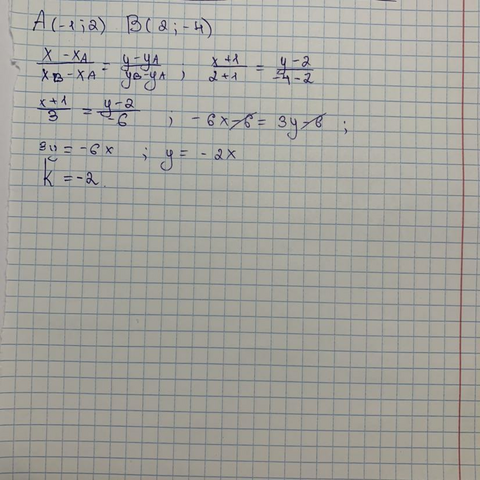 A(-1;2) B(2;-4)
x - xA / xB - xA = y - yA / yB - yA ; x+1 / 2+1 = y-2 / -4-2
x+1 / 3 = y-2 / -6 ; -6x-6 = 3y-6 ;
3y = -6x ; y = -2x
K = -2.